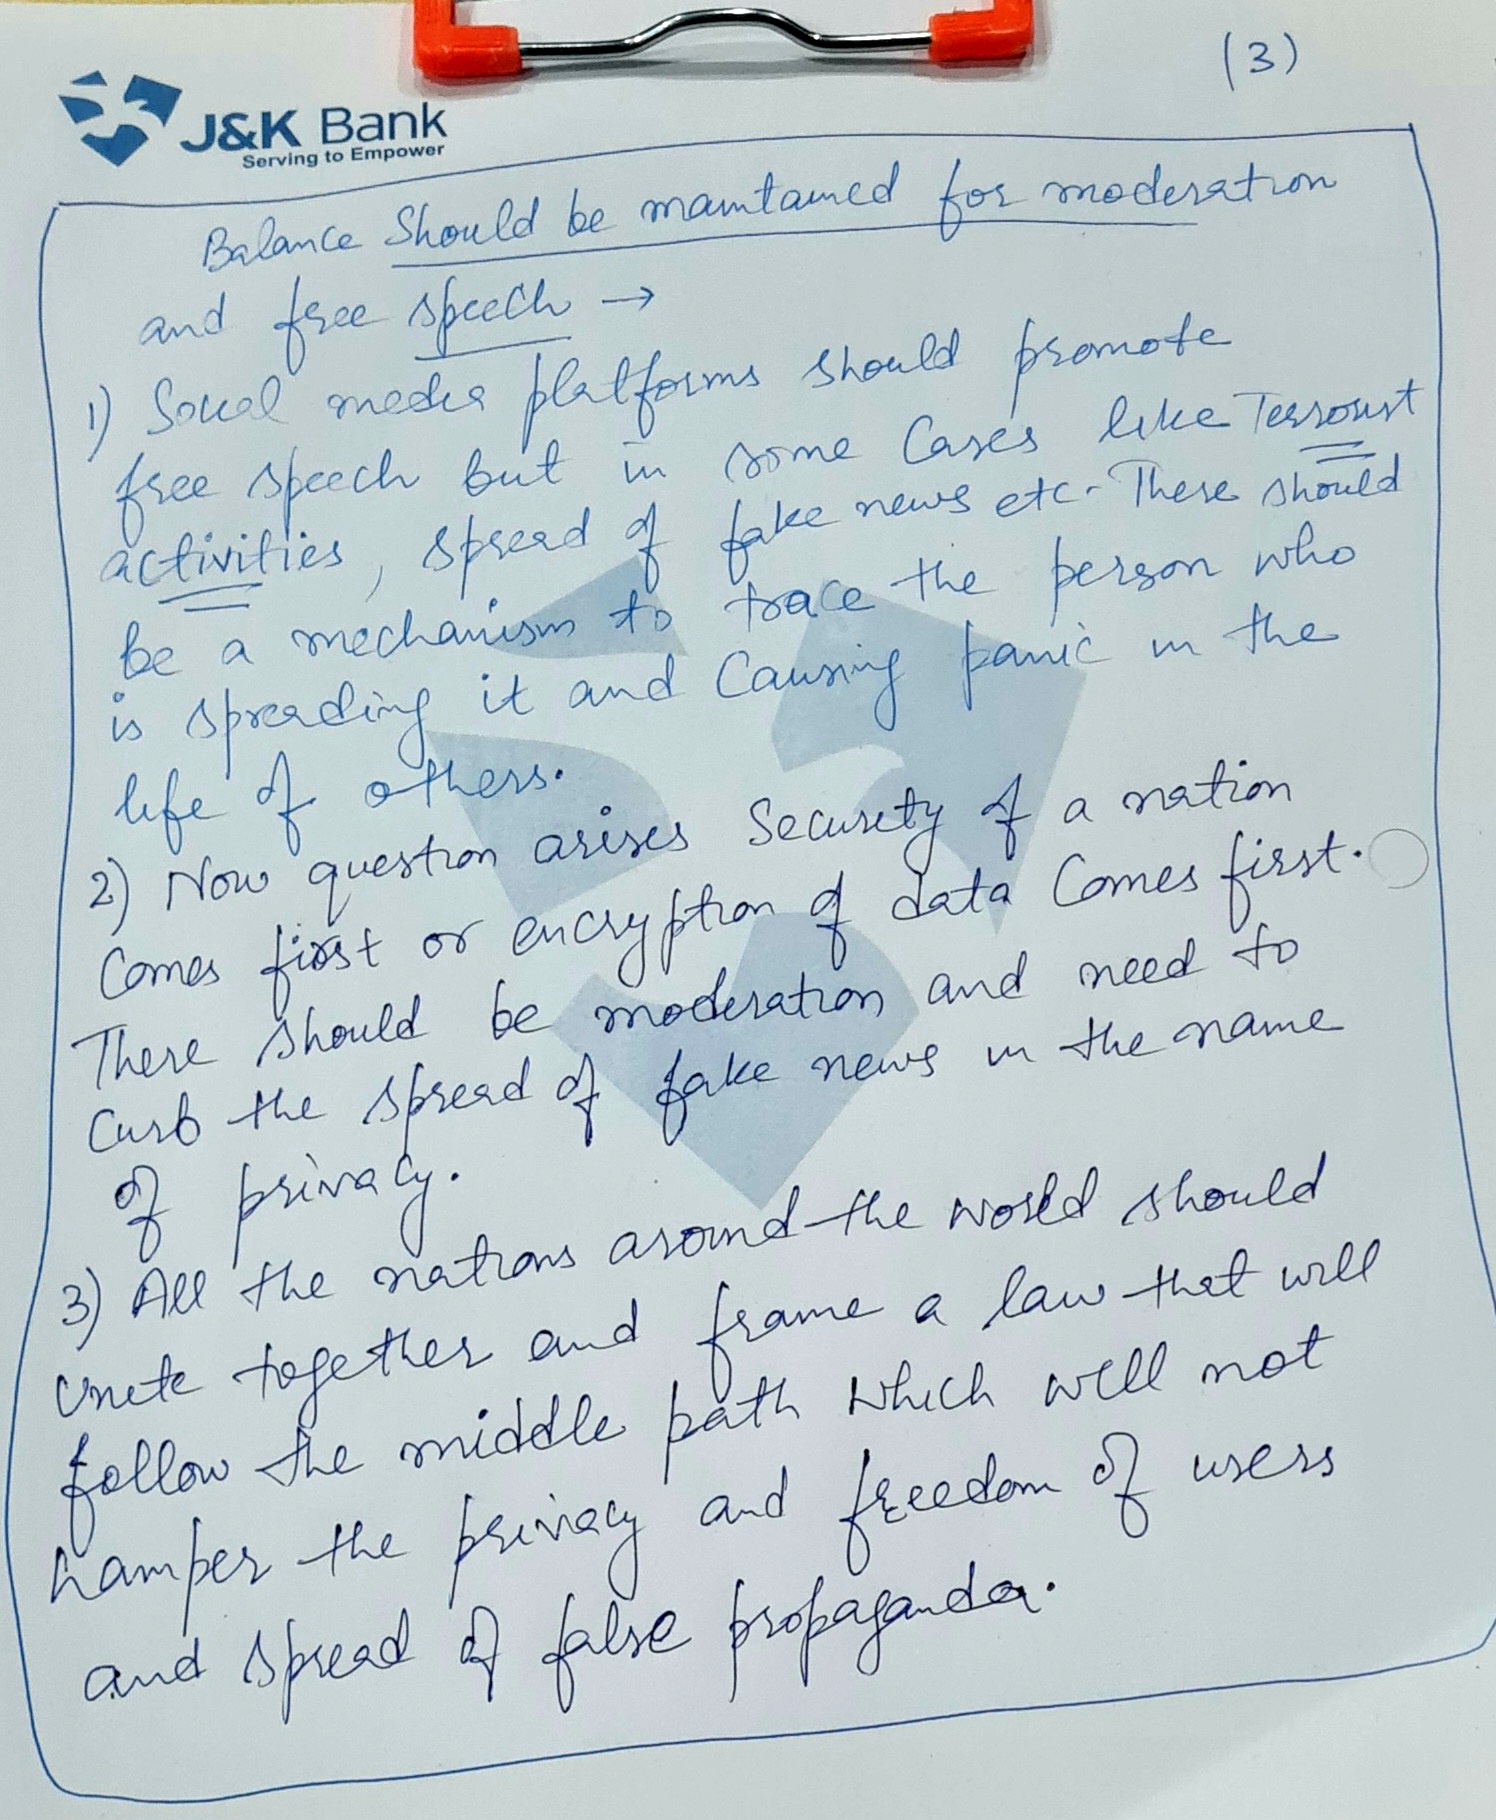 (3)
J&K Bank
Serving to Empower
Balance Should be maintained for moderation
and free speech →
1) Social media platforms should promote
free speech but in some Cases like Terrorist
activities, spread of fake news etc. There should
be a mechanism to trace the person who
is spreading it and Causing panic in the
life of others.
2) Now question arises Security of a nation
Comes first or encryption of data Comes first.
There should be moderation and need to
Curb the spread of fake news in the name
of privacy.
3) All the nations around the world should
Unite together and frame a law that will
follow the middle path which will not
hamper the privacy and freedom of users
and spread of false propaganda.